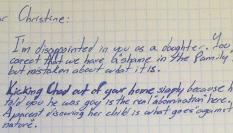 ar Christine:
I'm disappointed in you as a daughter. You
correct that we have a "shame in the family"
but mistaken about what it is.
Kicking Chad out of your home simply because h
told you he was gay is the real "abomination" here.
A parent disowning her child is what goes "against
nature".